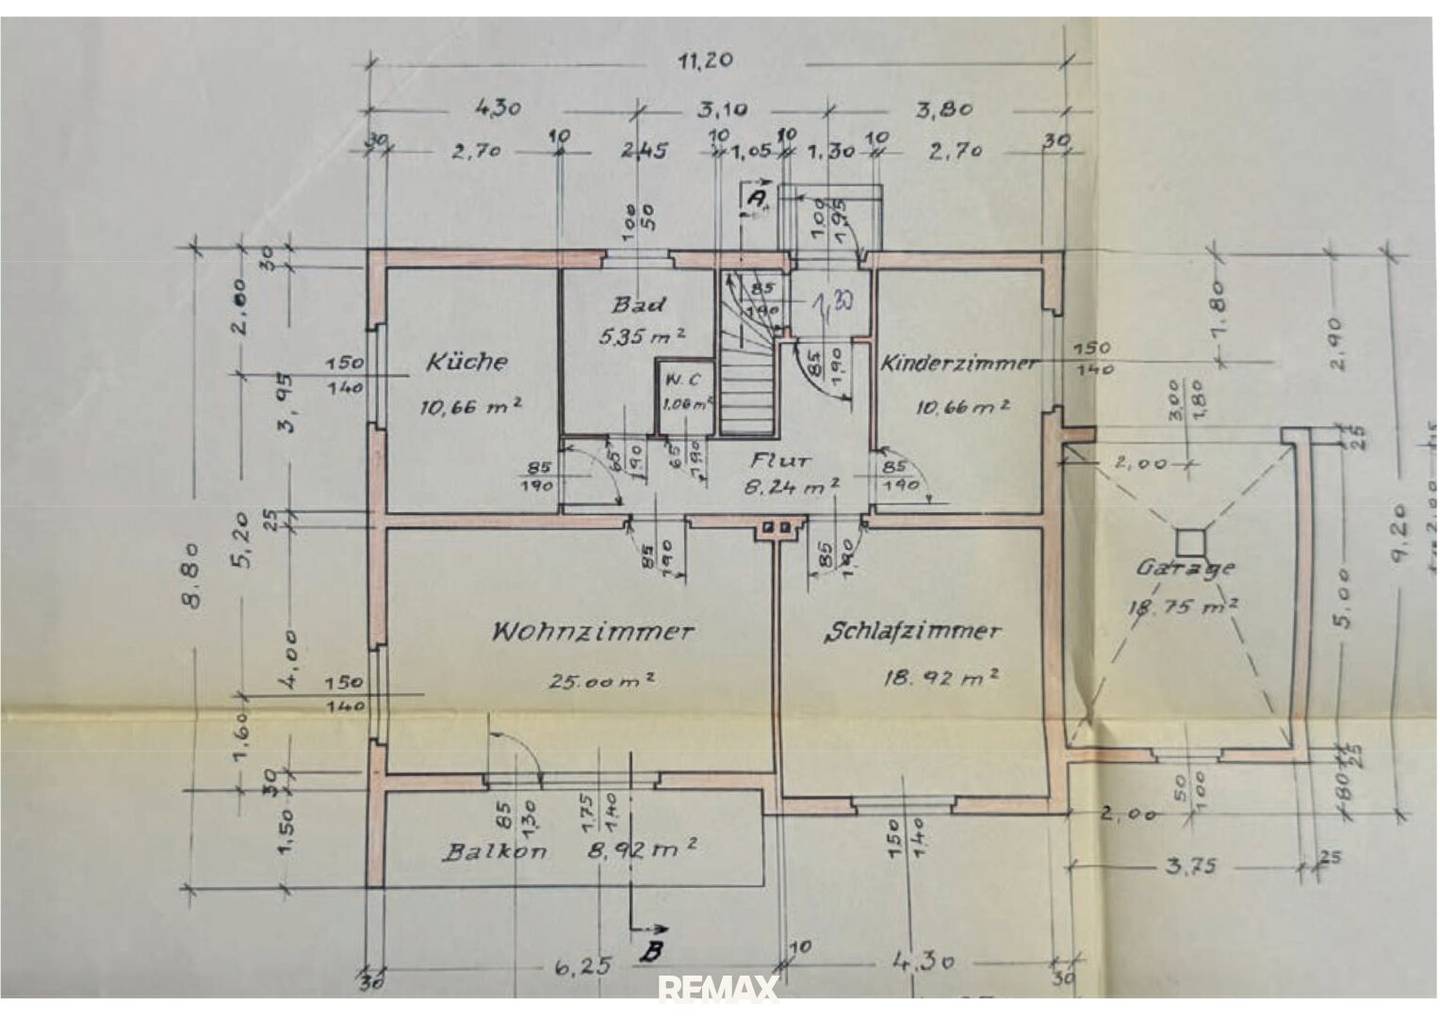 11,20
4,30 3,10 3,80
30 2,70 10 2,45 10 1,05 10 1,30 10 2,70 30
A
100
50
1,00
1,95
30
2,80
3,95
25
5,20
8.80
4,00
1,60
30
1,50
Küche
10,66 m²
Bad
5,35 m²
W.C
1,06 m²
85
190
1,30
85
1,90
Kinderzimmer
10,66 m²
150
140
150
140
Flur
8,24 m²
85
190
65
1,90
65
1,90
85
190
85
190
85
1,90
Wohnzimmer
25.00 m²
Schlafzimmer
18.92 m²
150
140
Garage
18.75 m²
3,00
1,80
2,00
1.80
2,90
25
5.00
9,20
25
80
50
100
2,00
3,75
25
85
1,30
1,75
1,40
150
140
Balkon 8,92 m²
B
30 6,25 10 4,30 30
REMAX